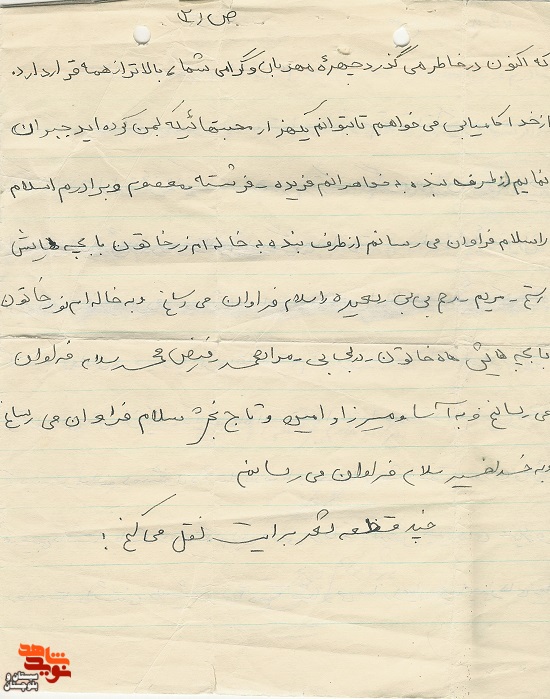 ص ۲
که اکنون در خاطر می گذرد چهرهٔ مهربان و گرامی شماء بالاتر از همه قرار دارد.
از خدا کامیابی می خواهم تا بتوانم یکهزار محبتهائیکه بمن کرده اید جبران
نمایم از طرف بنده به خواهرانم فریده - فرشته معصوم و برادرم اسلام
را سلام فراوان می رسانم از طرف بنده به خاله ام زرخاتون با بچه هایش
مریم بی بی سعیده را سلام فراوان می رسانم و به خاله ام نورخاتون
با بچه هایش ماه خاتون - فیض محمد سلام فراوان
می رسانم و به آسا و میرزا و امین و تاج بخش سلام فراوان می رسانم
و به سلام فراوان می رسانم
چند قطعه شعر برایت نقل می کنم !
شاهد
نوید
سیستان و
بلوچستان